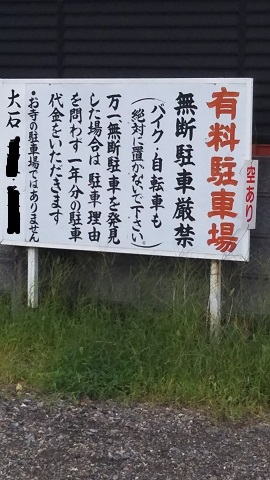 有料駐車場
空あり
無断駐車厳禁
(バイク・自転車も
絶対に置かないで下さい)
万一無断駐車を発見
した場合は駐車理由
を問わず一年分の駐車
代金をいただきます
・お寺の駐車場ではありません
大石